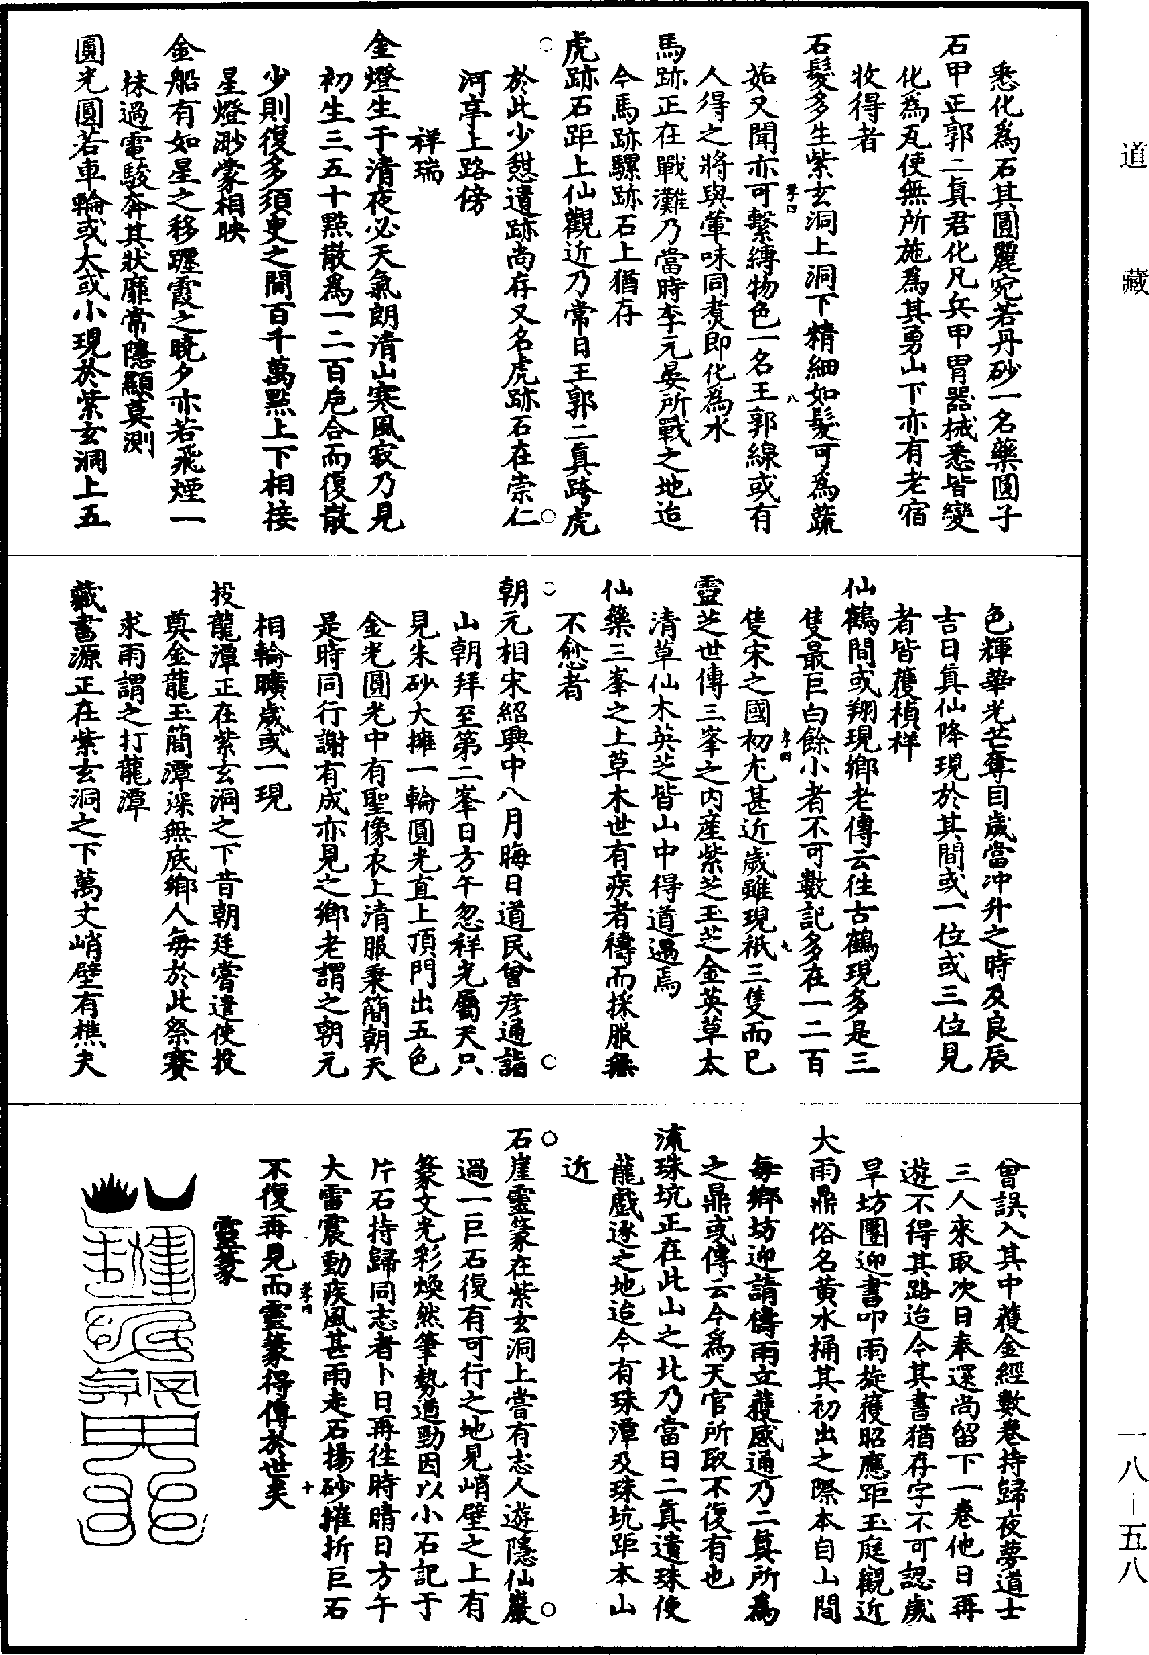 道藏
悉化為石其圓麗宛若丹砂一名藥圓子
石甲正郭二真君化凡兵甲冑器械悉皆變
化為瓦使無所施為其勇山下亦有老宿
收得者
石髮多生紫玄洞上洞下精細如髮可為蔬
茹又聞亦可繫縛物色一名王郭線或有
人得之將與葷味同煑即化為水
馬跡正在戰灘乃當時李元晏所戰之地迨
今馬跡騾跡石上猶存
虎跡石距上仙觀近乃常日王郭二真跨虎
於此少憇遺跡尚存又名虎跡石在崇仁
河亭上路傍
祥瑞
金燈生于清夜必天氣朗清山寒風寂乃見
初生三五十點散為一二百巵合而復散
少則復多須臾之間百千萬點上下相接
星燈渺蒙相映
金船有如星之移躔霞之曉夕亦若飛煙一
抹過電駿奔其狀靡常隱顯莫測
圓光圓若車輪或大或小現於紫玄洞上五
色輝華光芒奪目歲當冲升之時及良辰
吉日真仙降現於其間或一位或三位見
者皆獲禎祥
仙鶴間或翔現鄉老傳云往古鶴現多是三
隻最巨白餘小者不可數記多在一二百
隻宋之國初尤甚近歲雖現祇三隻而已
靈芝世傳三峯之內産紫芝玉芝金英草太
清草仙木英芝皆山中得道遇焉
仙藥三峯之上草木世有疾者禱而採服無
不愈者
朝元相宋紹興中八月晦日道民曾彦通詣
山朝拜至第二峯日方午忽祥光屬天只
見朱砂大擁一輪圓光直上頂門出五色
金光圓光中有聖像衣上清服秉簡朝天
是時同行謝有成亦見之鄉老謂之朝元
相輪曠歲或一現
投龍潭正在紫玄洞之下昔朝廷嘗遣使投
奠金龍玉簡潭深無底鄉人每於此祭賽
求雨謂之打龍潭
藏書源正在紫玄洞之下萬丈峭壁有樵夫
曾誤入其中獲金經數卷持歸夜夢道士
三人來取次日奉還尚留下一卷他日再
遊不得其路迨今其書猶存字不可認歲
旱坊團迎書叩雨旋獲昭應距玉庭觀近
大雨鼎俗名黄水桶其初出之際本自山間
每鄉坊迎請禱雨立獲感通乃二真所為
之鼎或傳云今為天官所取不復有也
流珠坑正在此山之北乃當日二真遺珠使
龍戲逐之地迨今有珠潭及珠坑距本山
近
石崖靈篆在紫玄洞上嘗有志人遊隱仙巖
過一巨石復有可行之地見峭壁之上有
篆文光彩煥然筆勢遒勁因以小石記于
片石持歸同志者卜日再往時晴日方午
大雷震動疾風甚雨走石揚砂摧折巨石
不復再見而靈篆得傳於世矣
靈篆
一八—五八